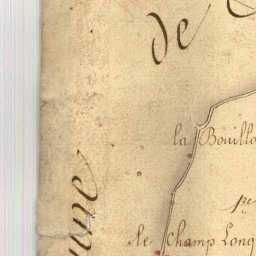 de
la Bouillo
pe
le Champ Long